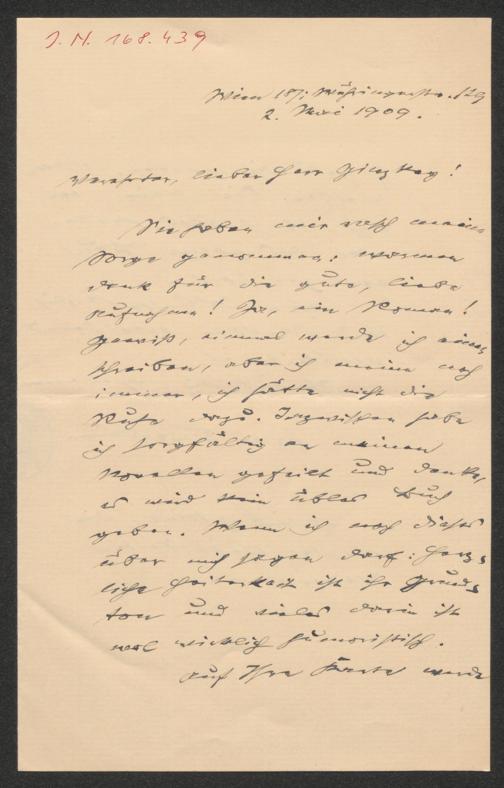 J. N. 168.439
Wien 18/1 Währingerstr. 129
2. Mai 1909.
Verehrter, lieber Herr Ginzkey!
Sie haben mir rasch meine
Sorge genommen: warmen
Dank für die gute, liebe
Aufnahme! Ja, ein Roman!
Gewiß, einmal werde ich einen
schreiben, aber ich meine noch
immer, ich hätte nicht die
Ruhe dazu. Inzwischen habe
ich sorgfältig an meinen
Novellen gefeilt und denke,
es wird kein übles Buch
geben. Wenn ich noch dieses
über mich sagen darf: herz-
liche Heiterkeit ist ihr Grund-
ton und vieles darin ist
wol wirklich humoristisch.
Auf Ihre Karte werde